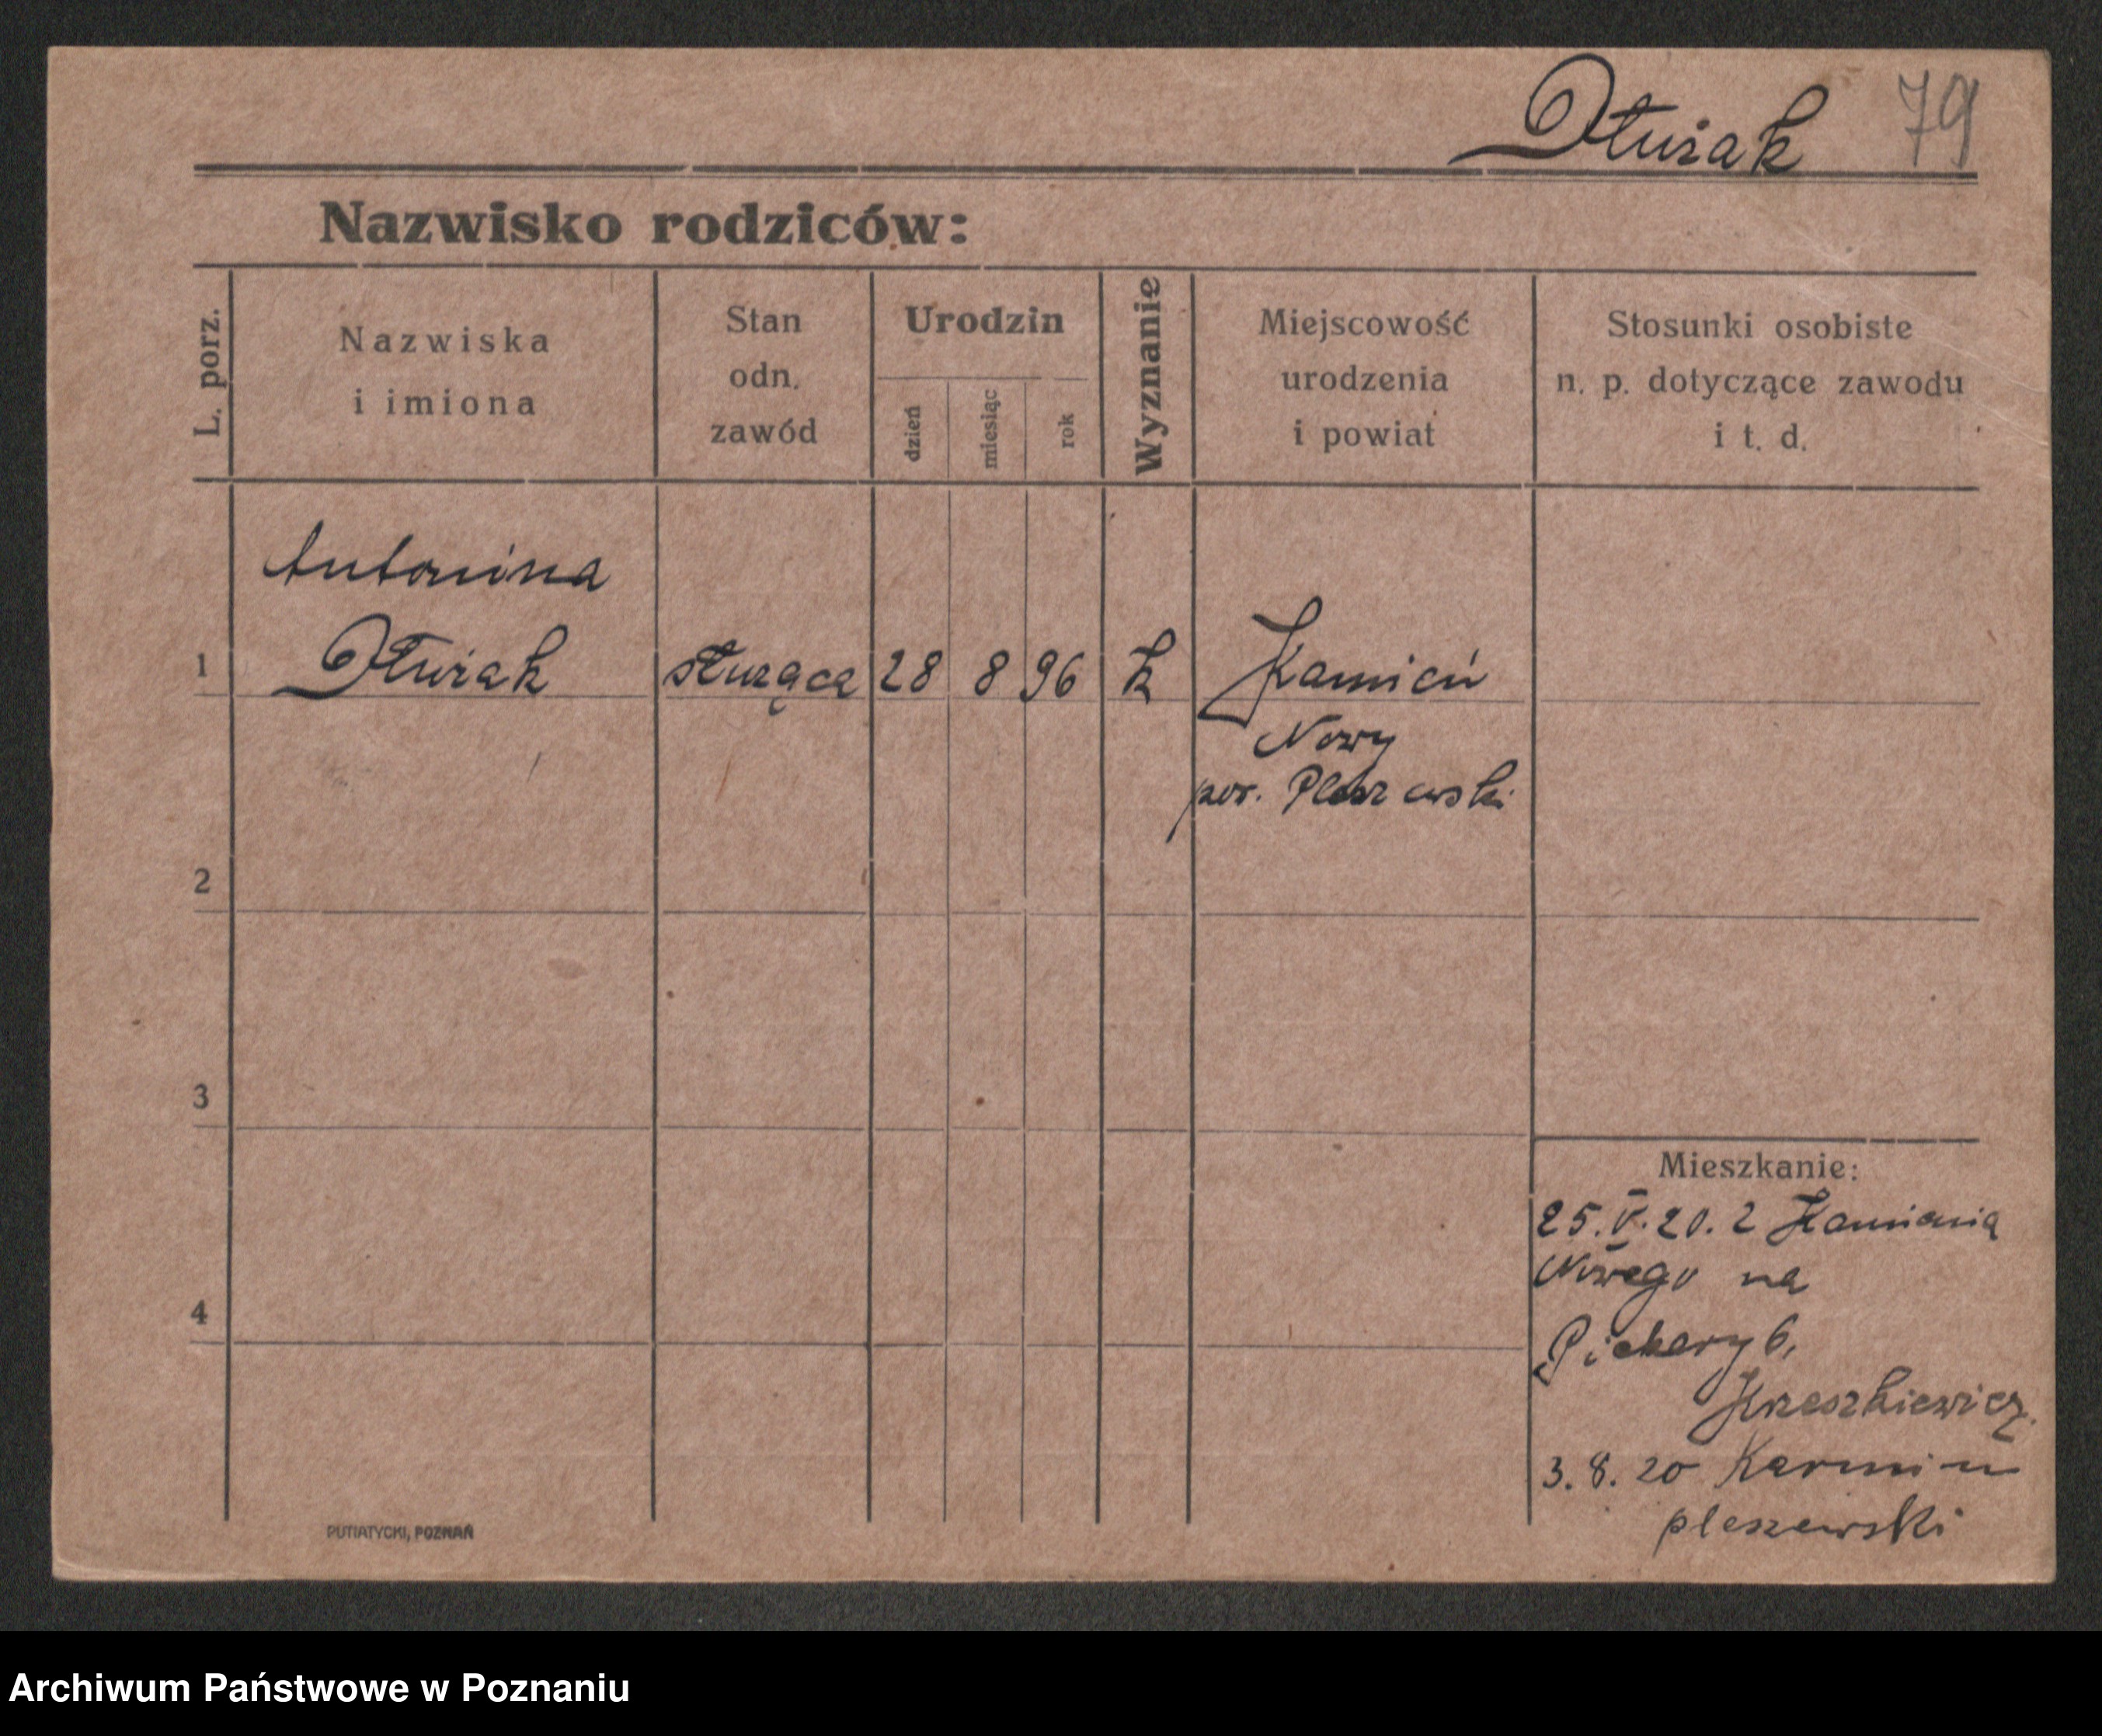 Dłużak 79
Nazwisko rodziców:
L. porz.
Nazwiska
i imiona
Stan
odn.
zawód
Urodzin
dzień
miesiąc
rok
Wyznanie
Miejscowość
urodzenia
i powiat
Stosunki osobiste
n. p. dotyczące zawodu
i t. d.
Antonina
1 Dłużak służąca 28 8 96 k Kamień
Nowy
pow. Pleszewski
2
3
4
Mieszkanie:
25.V.20. z Kamienia
Nowego na
Piekary 6,
3. 8. 20 Karmin
pleszewski
PUTIATYCKI, POZNAŃ
Archiwum Państwowe w Poznaniu